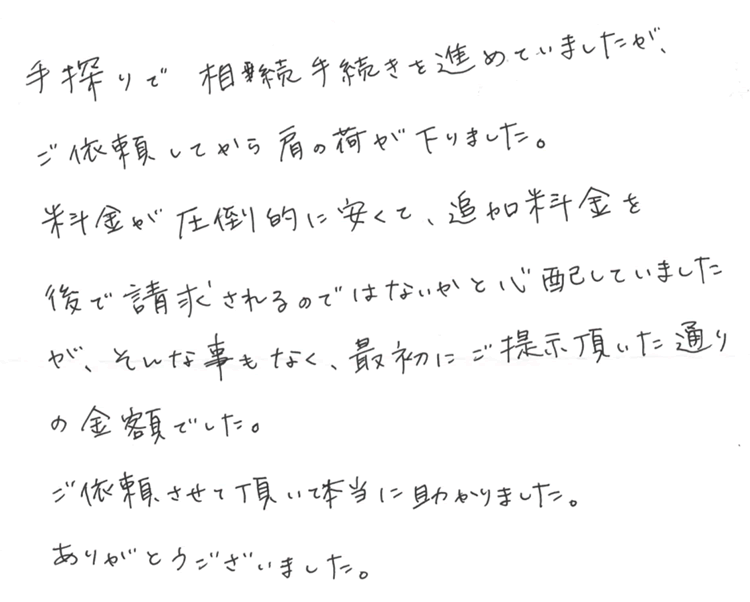 手探りで 相続手続きを進めていましたが、
ご依頼してから肩の荷が下りました。
料金が圧倒的に安くて、追加料金を
後で請求されるのではないかと心配していました
が、そんな事もなく、最初にご提示頂いた通り
の金額でした。
ご依頼させて頂いて本当に助かりました。
ありがとうございました。